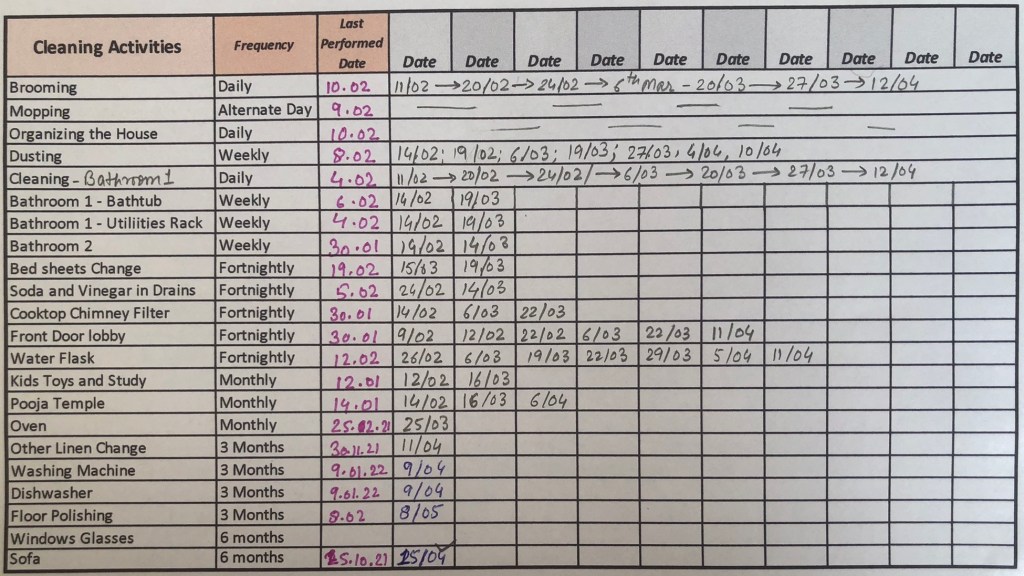 Cleaning Activities Frequency Last Performed Date Date Date Date Date Date Date Date Date Date
Brooming Daily 10.02 11/02 → 20/02 → 24/02 → 6th Mar - 20/03 → 27/03 → 12/04
Mopping Alternate Day 9.02 — — — —
Organizing the House Daily 10.02 — — — —
Dusting Weekly 8.02 14/02; 19/02; 6/03; 19/03; 27/03, 4/04, 10/04
Cleaning - Bathroom 1 Daily 4.02 11/02 → 20/02 → 24/02/ → 6/03 → 20/03 → 27/03 → 12/04
Bathroom 1 - Bathtub Weekly 6.02 14/02 19/03
Bathroom 1 - Utiliities Rack Weekly 4.02 14/02 19/03
Bathroom 2 Weekly 30.01 14/02 14/03
Bed sheets Change Fortnightly 19.02 15/03 19/03
Soda and Vinegar in Drains Fortnightly 5.02 24/02 14/03
Cooktop Chimney Filter Fortnightly 30.01 14/02 6/03 22/03
Front Door lobby Fortnightly 30.01 9/02 12/02 22/02 6/03 22/03 11/04
Water Flask Fortnightly 12.02 26/02 6/03 19/03 22/03 29/03 5/04 11/04
Kids Toys and Study Monthly 12.01 12/02 16/03
Pooja Temple Monthly 14.01 14/02 16/03 6/04
Oven Monthly 25.02.21 25/03
Other Linen Change 3 Months 30.11.21 11/04
Washing Machine 3 Months 9.01.22 9/04
Dishwasher 3 Months 9.01.22 9/04
Floor Polishing 3 Months 8.02 8/05
Windows Glasses 6 months
Sofa 6 months 25.10.21 25/04